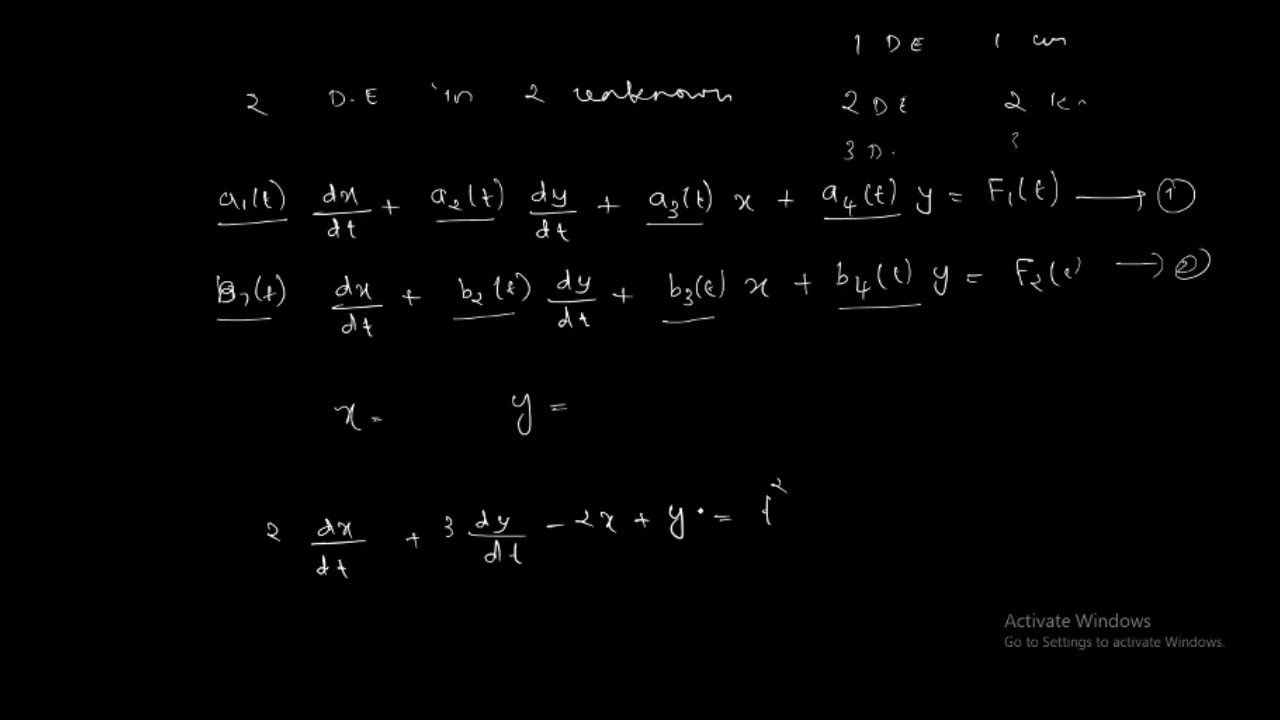 1 DE 1 un
2 D.E in 2 unknown 2 DE 2
3 D.
a₁(t) dx/dt + a₂(t) dy/dt + a₃(t) x + a₄(t) y = F₁(t) ⟶ ①
B₁(t) dx/dt + b₂(t) dy/dt + b₃(t) x + b₄(t) y = F₂(t) ⟶ ②
x = y =
2 dx/dt + 3 dy/dt - 2x + y = t²
Activate Windows
Go to Settings to activate Windows.